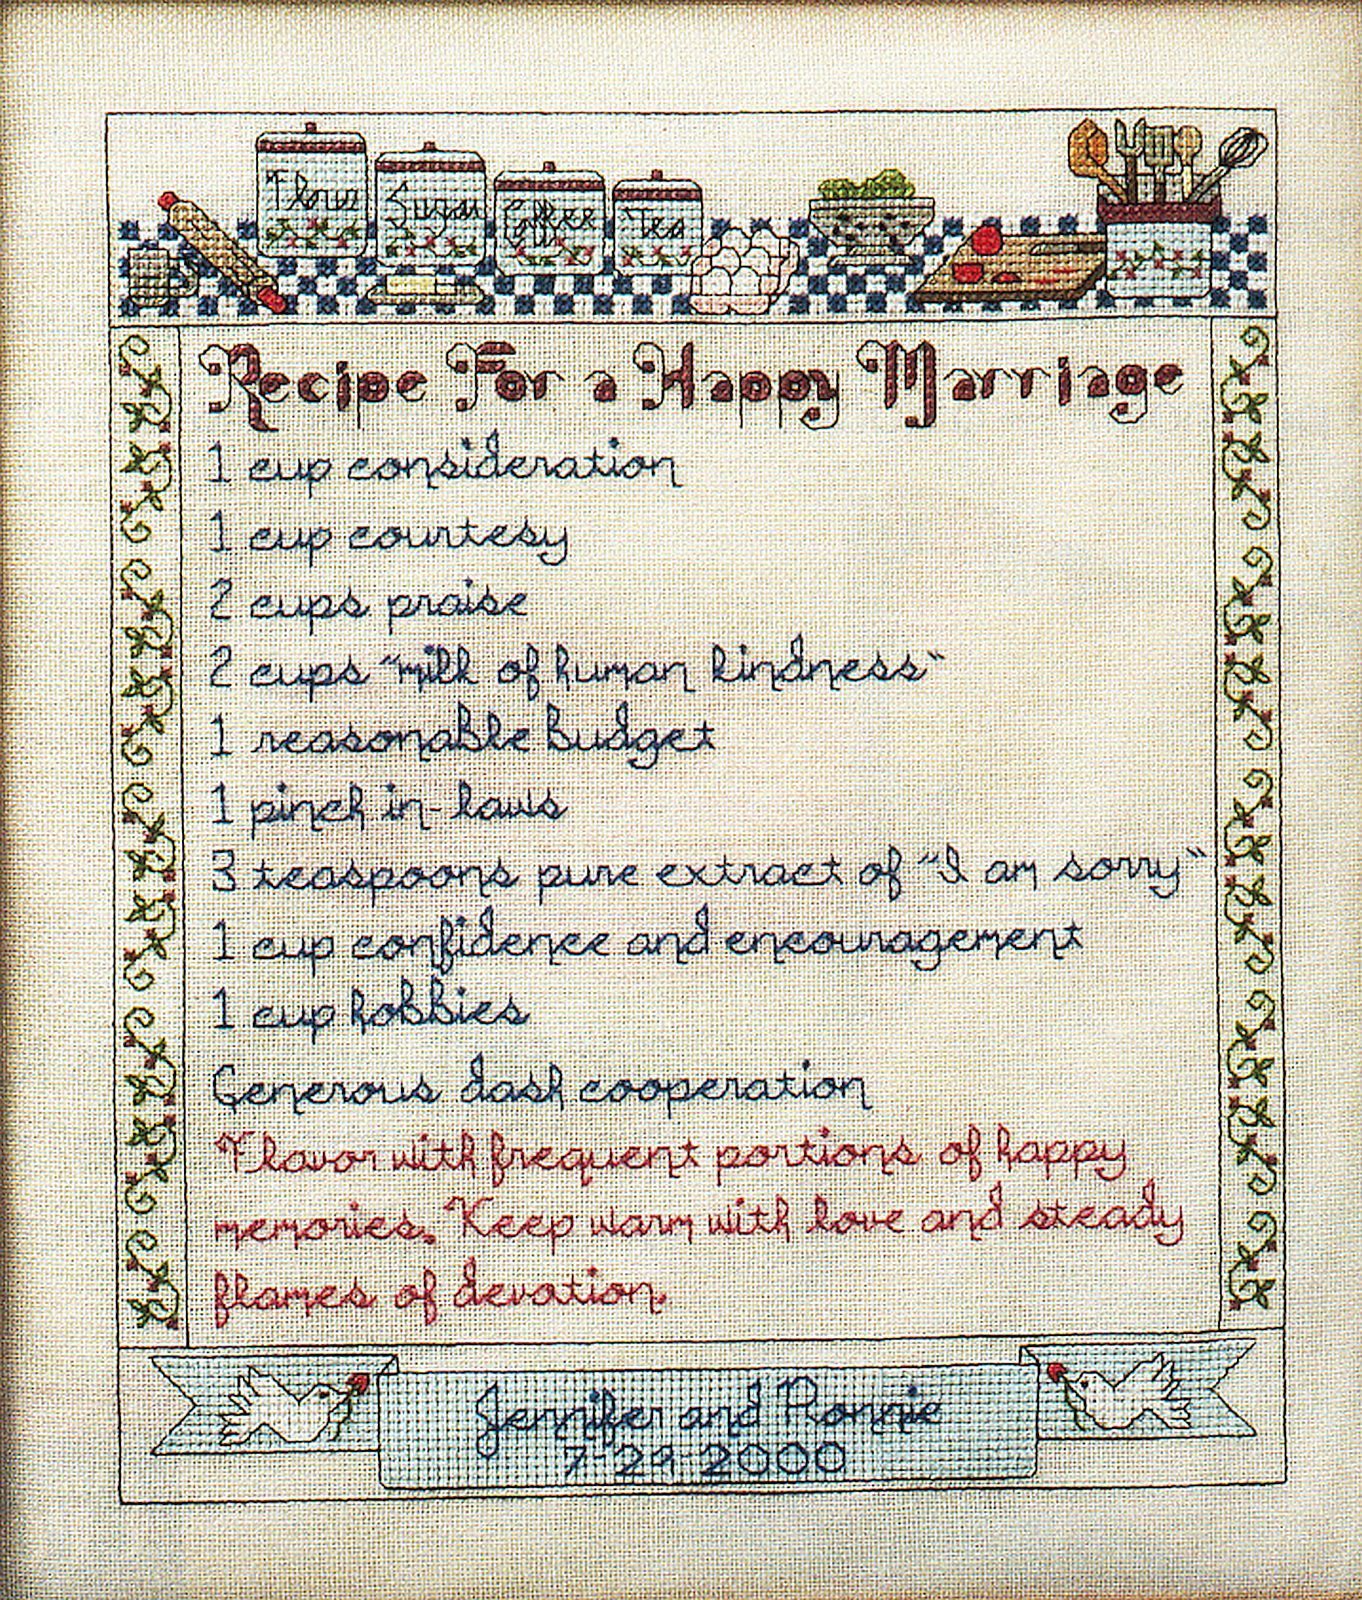 Flour Sugar Coffee Tea
Recipe For a Happy Marriage
1 cup consideration
1 cup courtesy
2 cups praise
2 cups "milk of human kindness"
1 reasonable budget
1 pinch in-laws
3 teaspoons pure extract of "I am sorry"
1 cup confidence and encouragement
1 cup hobbies
Generous dash cooperation
Flavor with frequent portions of happy
memories. Keep warm with love and steady
flames of devotion.
Jennifer and Ronnie
7-29-2000